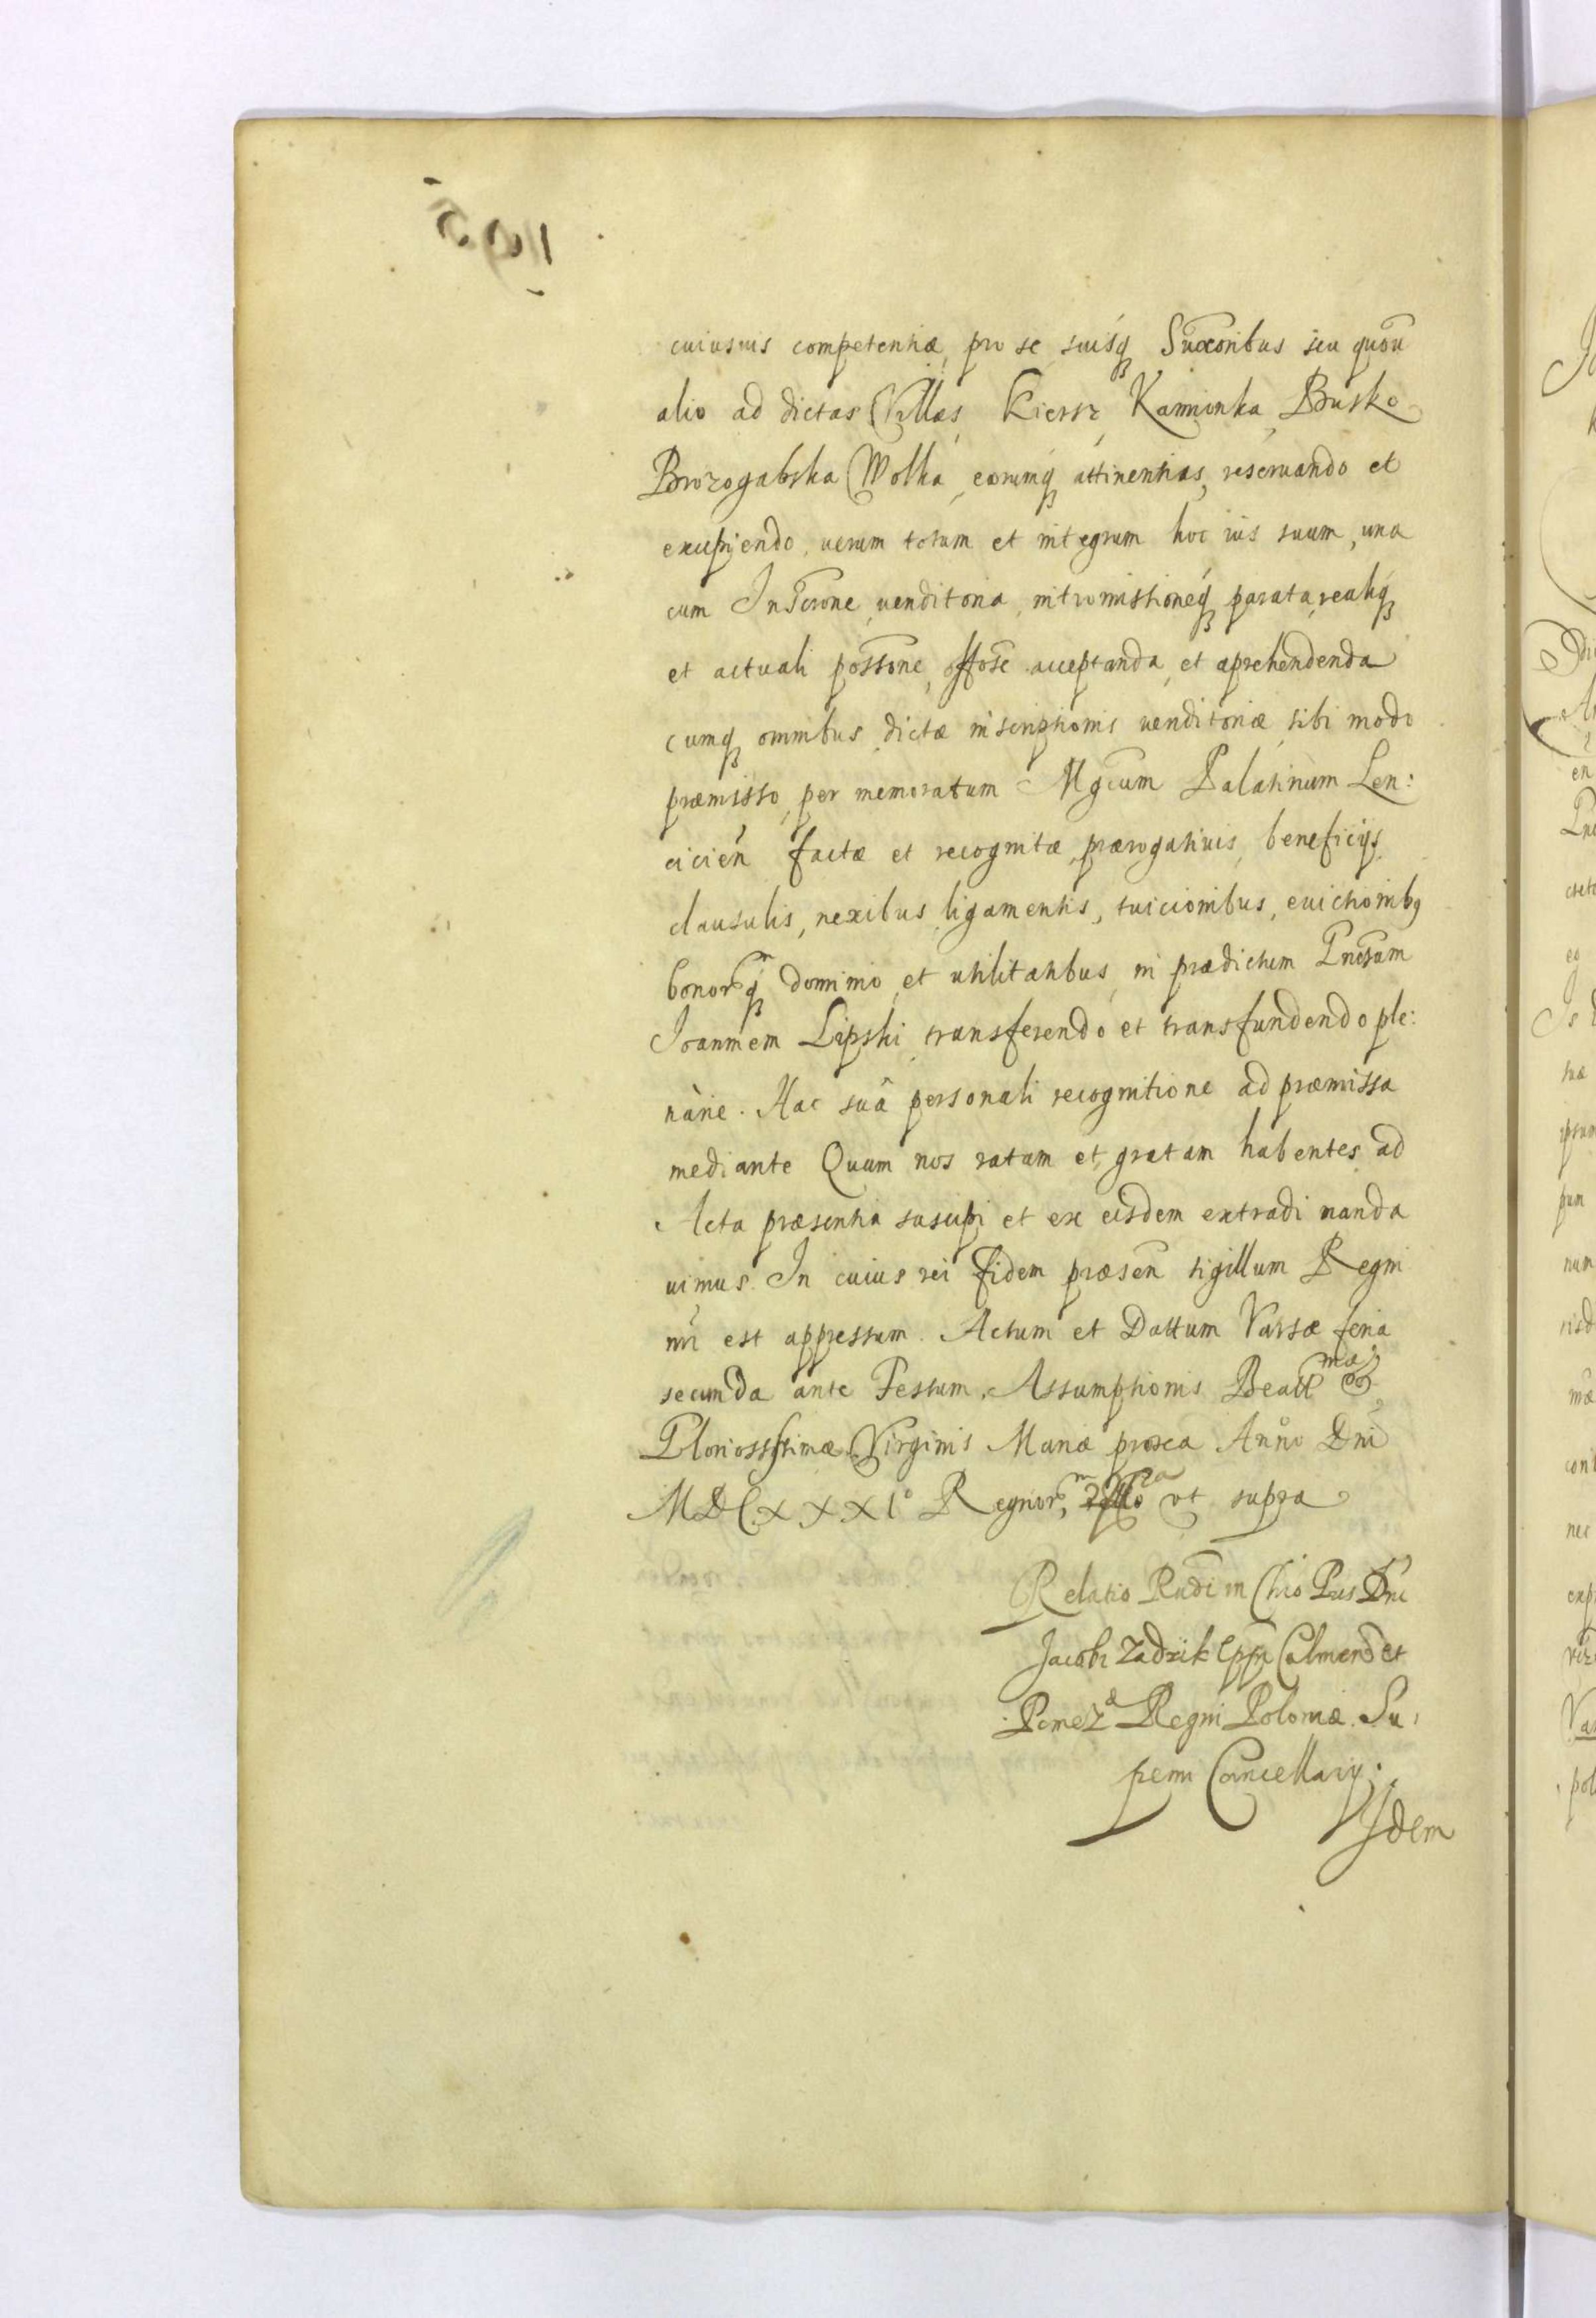 cuiusuis competentiæ, pro se suisq₃ Suc̃coribus seu quõu
alio ad dictas Villas Kiersz, Kamionka, Busko
Brozogabska Wolka, eorumq₃ attinentias, reseruando et
excipiendo, uerum totum et integrum hoc ius suum, una
cum Inscr̃one uenditoria, intromissioneq₃ parata, realiq₃
et actuali possõne, offõse acceptanda et aprehendenda
cumq₃ omnibus dictæ inscriptionis uenditoriæ sibi modo
præmisso, per memoratum Mgc̃um Palatinum Len:
cicieñ factæ et recognitæ, prærogatiuis, beneficijs
clausulis, nexibus, ligamentis, tuicionibus, euictionib₉
bonorq₃ dominio et utilitatibus in prædictum Gñosum
Ioannem Lipski transferendo et transfundendo ple:
nàrie. Hac suâ personali recognitione ad præmissa
mediante Quam nos ratam et gratam habentes ad
Acta præsentia suscipi et ex eisdem extradi manda
uimus. In cuius rei fidem præseñ sigillum Regni
nri est appressum. Actum et Dattum Varsæ feria
secunda ante Festum Assumptionis Beatt mæ &
Gloriosissimæ Virginis Mariæ proxa Anño Dñi
MDCXXXI° Regnor m ut supra
Relatio Rñdi in Chr̃o Pris Dñi
Jacobi Zadzik Epp̃i Culmen et
Pomez Regni Poloniæ Su:
premi Cancellarij.
Idem